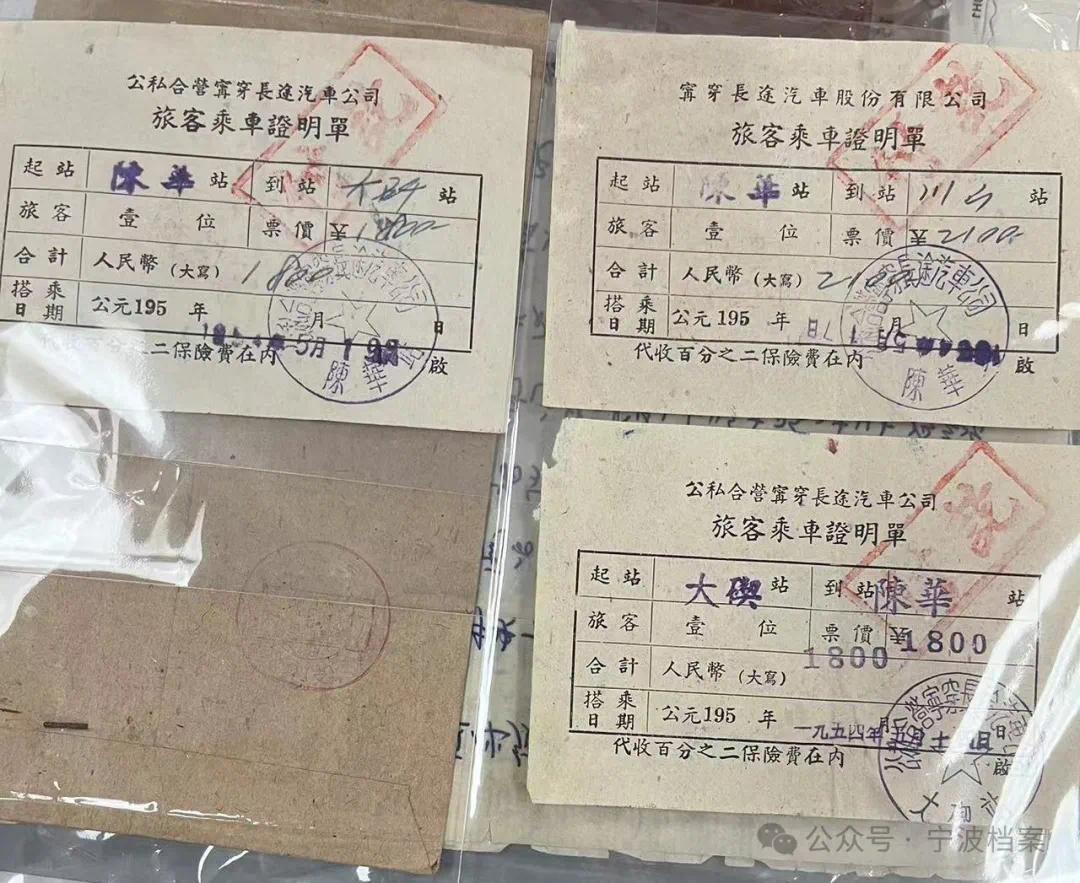 公私合營寗穿長途汽車公司
旅客乘車證明單
起站 陳華站 到站 站
旅客 壹位 票價 1800
合計 人民幣(大寫) 1800
搭乘日期 公元195 年 月 日
5月1
代收百分之二保險費在內 啟
陳華
寗穿長途汽車股份有限公司
旅客乘車證明單
起站 陳華站 到站 站
旅客 壹位 票價 2100
合計 人民幣(大寫) 2100
搭乘日期 公元195 年 月 日
代收百分之二保險費在內 啟
陳華
公私合營寗穿長途汽車公司
旅客乘車證明單
起站 大碶站 到站 陳華 站
旅客 壹位 票價 1800
1800
合計 人民幣(大寫)
搭乘日期 公元195 年 月 日
一九五四年五月
代收百分之二保險費在內 啟
公众号·宁波档案